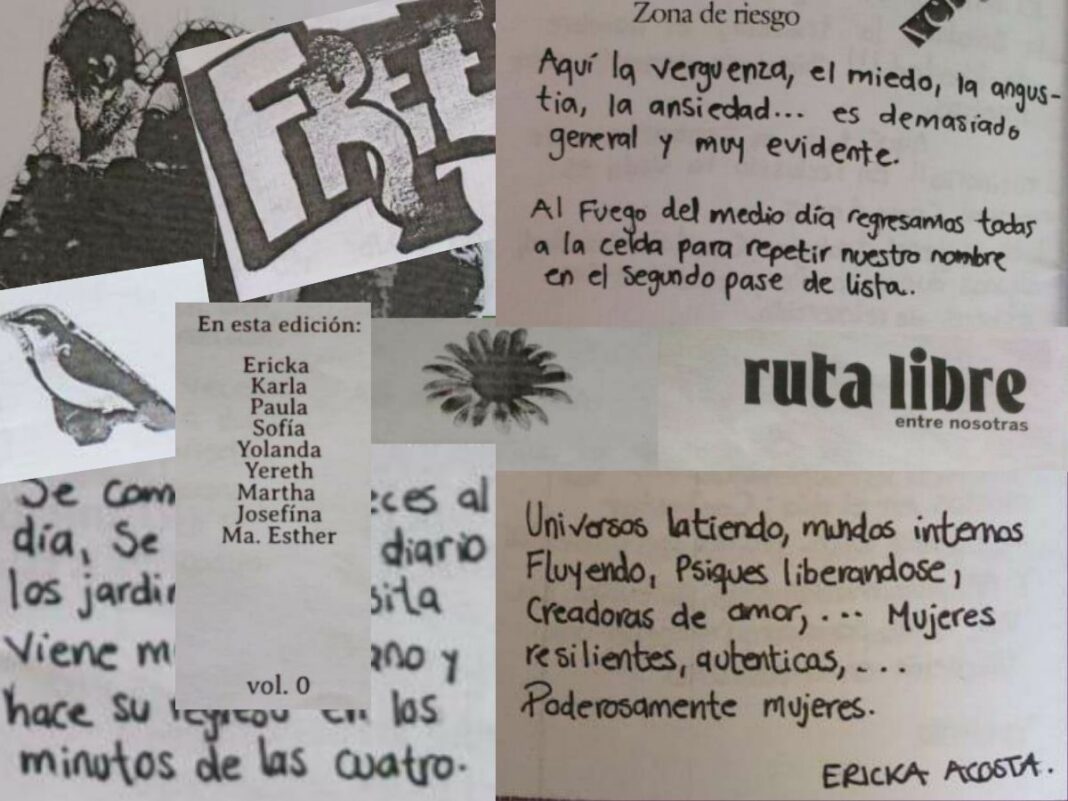 FREE
Zona de riesgo
Aquí la verguenza, el miedo, la angus-
tia, la ansiedad... es demasiado
general y muy evidente.
Al Fuego del medio día regresamos todas
a la celda para repetir nuestro nombre
en el segundo pase de lista.
En esta edición:
Ericka
Karla
Paula
Sofía
Yolanda
Yereth
Martha
Josefína
Ma. Esther
vol. 0
ruta libre
entre nosotras
Se al
día, Se diario
los
Viene y
hace su en los
minutos de las cuatro.
Universos latiendo, mundos internos
Fluyendo, Psiques liberandose,
Creadoras de amor, ... Mujeres
resilientes, autenticas, ...
Poderosamente mujeres.
ERICKA ACOSTA.